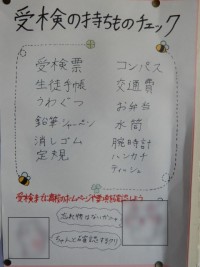 受検の持ちものチェック
受検票
生徒手帳
うわぐつ
鉛筆 シャーペン
消しゴム
定規
コンパス
交通費
お弁当
水筒
腕時計
ハンカチ
ティッシュ
忘れ物はないかな